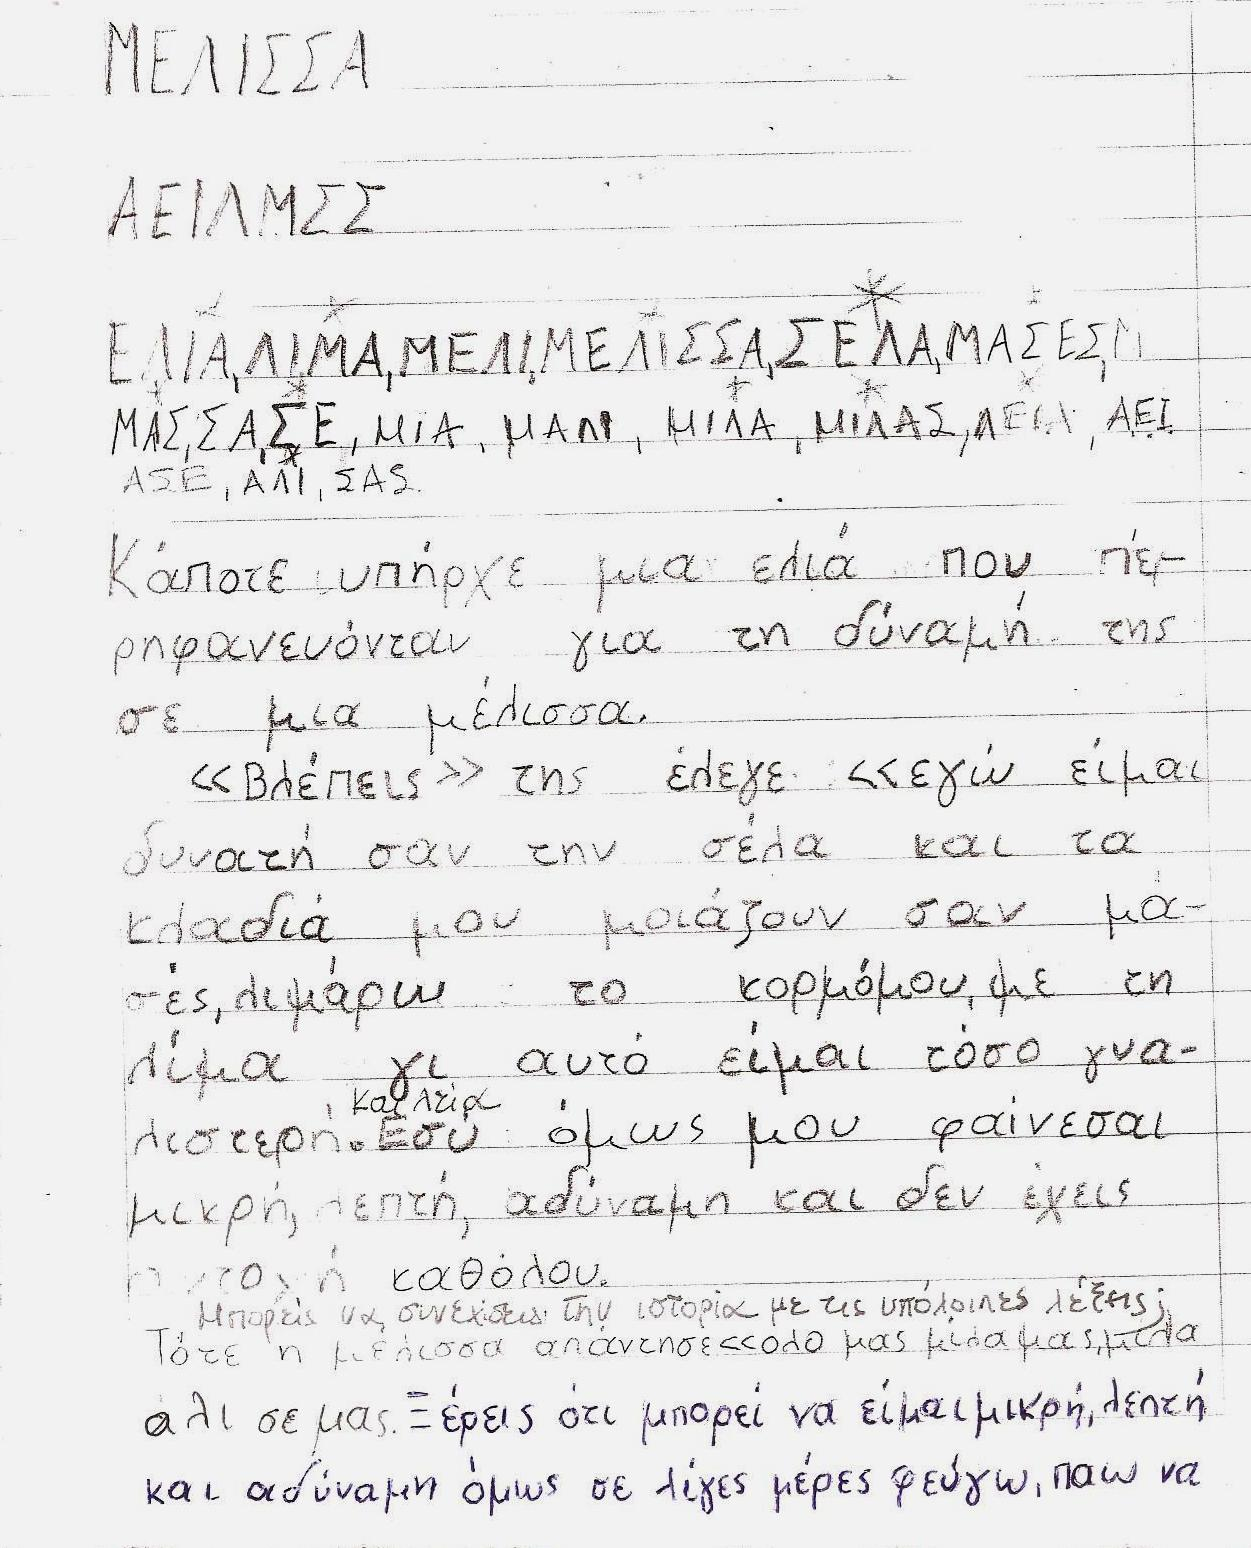 ΜΕΛΙΣΣΑ
ΑΕΙΛΜΣΣ
ΕΛΙΑ, ΛΙΜΑ, ΜΕΛΙ, ΜΕΛΙΣΣΑ, ΣΕΛΑ, ΜΑΣΕΣ,
ΜΑΣ, ΣΑ, ΣΕ, ΜΙΑ, ΜΑΛΙ, ΜΙΛΑ, ΜΙΛΑΣ, ΛΕΙΑ, ΑΕΙ
ΑΣΕ, ΑΛΙ, ΣΑΣ.
Κάποτε υπήρχε μια ελιά που πε-
ρηφανευόνταν για τη δύναμή της
σε μια μέλισσα.
<<Βλέπεις>> της έλεγε <<εγώ είμαι
δυνατή σαν την σέλα και τα
κλαδιά μου μοιάζουν σαν μα-
σές, λιμάρω το κορμόμου, με τη
λίμα γι αυτό είμαι τόσο γυα-
λιστερή και λεία. Εσύ όμως μου φαίνεσαι
μικρή, λεπτή, αδύναμη και δεν έχεις
καθόλου.
Μπορείς να συνεχίσεις την ιστορία με τις υπόλοιπες λέξεις;
Τότε η μέλισσα απάντησε<<ολο μας μίλα μας, μίλα
αλι σε μας. Ξέρεις ότι μπορεί να είμαι μικρή, λεπτή
και αδύναμη όμως σε λίγες μέρες φεύγω, παω να